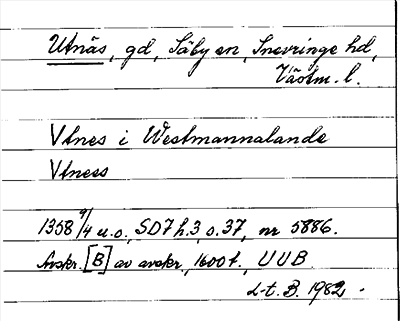 Utnäs, gd, Säby sn, Snevringe hd,
Västm. l.
Vtnes i Westmannalande
Vtness
1358 9/4 u.o., SD7 h.3, s.37, nr 5886.
Avskr. [B] av avskr., 1600t., UUB
L-t. B. 1982.